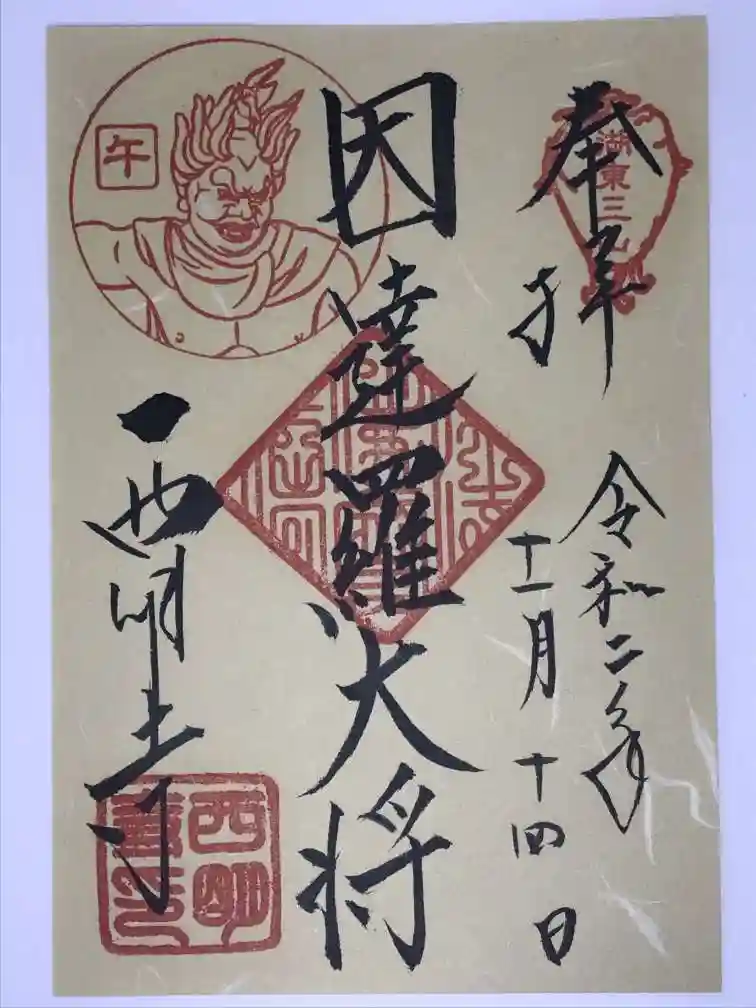 奉拝
湖東三山
令和二年
十一月十四日
因達羅大将
午
西明寺
西明